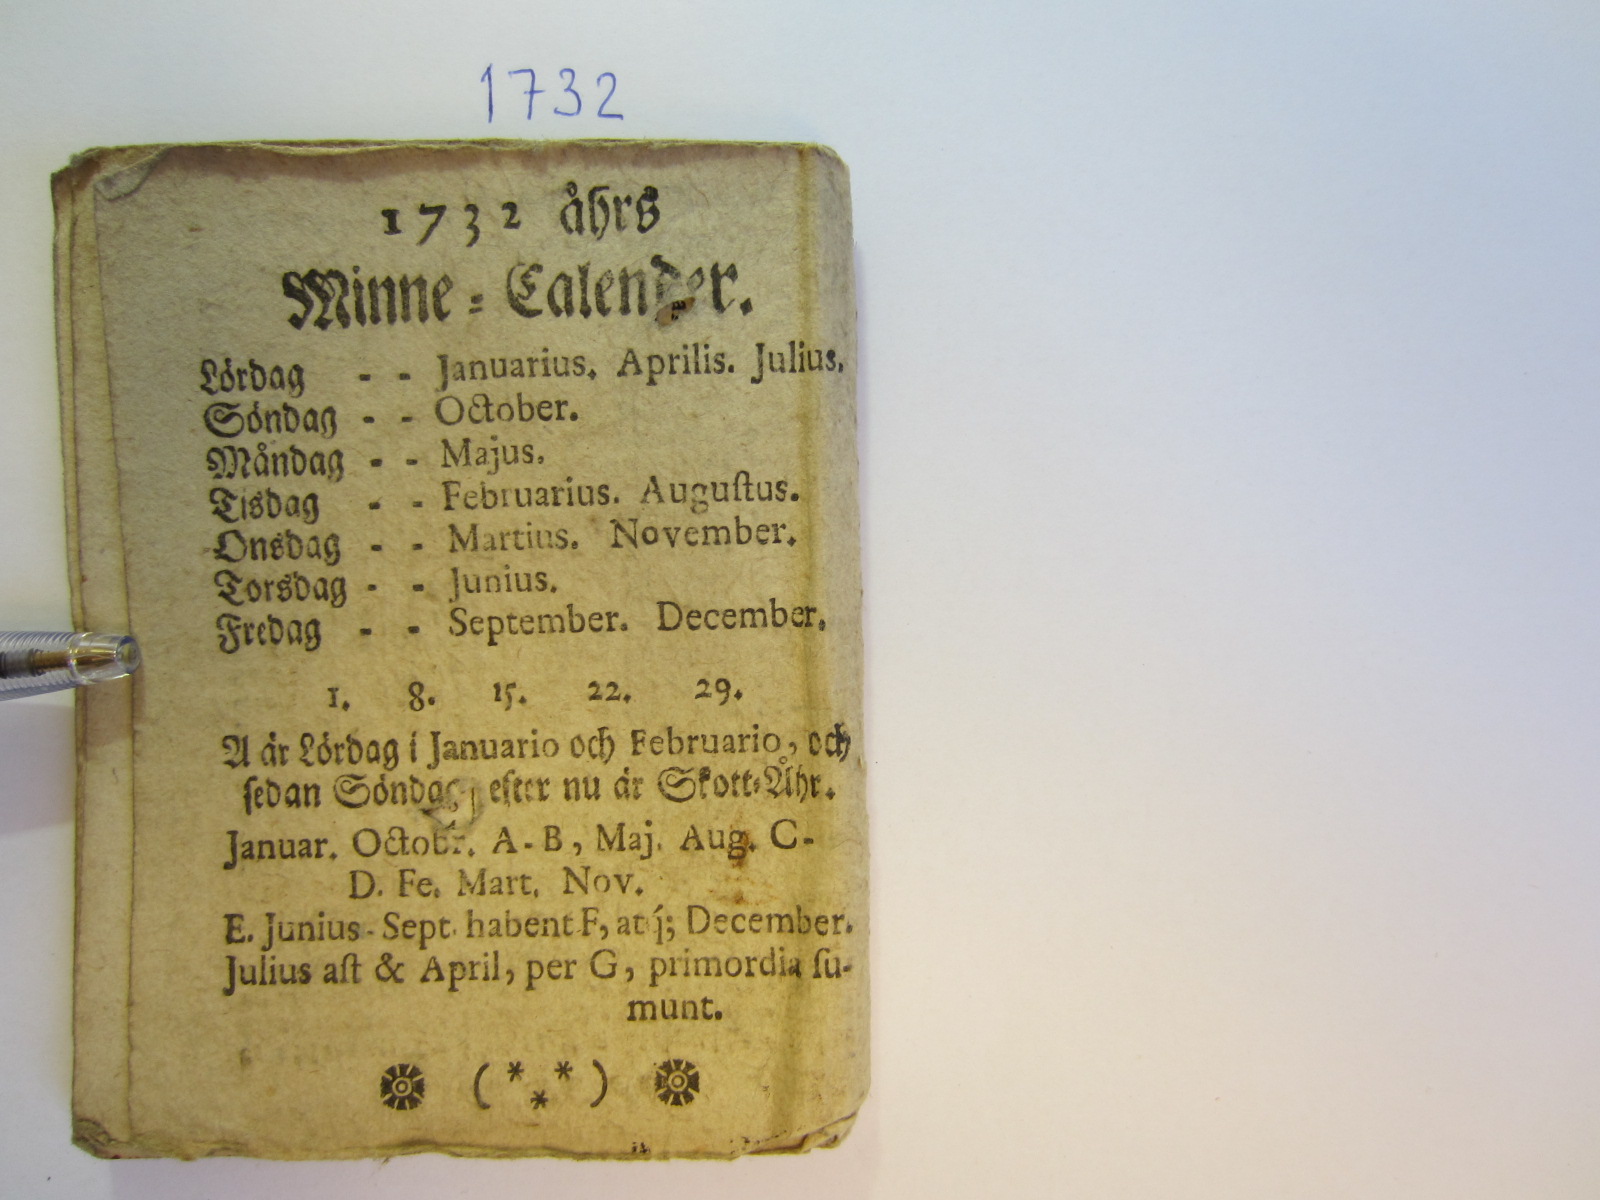 1732
1732 åhrs
Minne-Calender.
Lördag - - Januarius. Aprilis. Julius.
Söndag - - October.
Måndag - - Majus.
Tisdag - - Februarius. Augustus.
Onsdag - - Martius. November.
Torsdag - - Junius.
Fredag - - September. December.
1. 8. 15. 22. 29.
A är Lördag i Januario och Februario, och
sedan Söndag, efter nu är Skott-Åhr.
Januar. Octobr. A-B, Maj. Aug. C-
D. Fe. Mart. Nov.
E. Junius-Sept. habent F, atq́; December.
Julius ast & April, per G, primordia su-
munt.
(***)